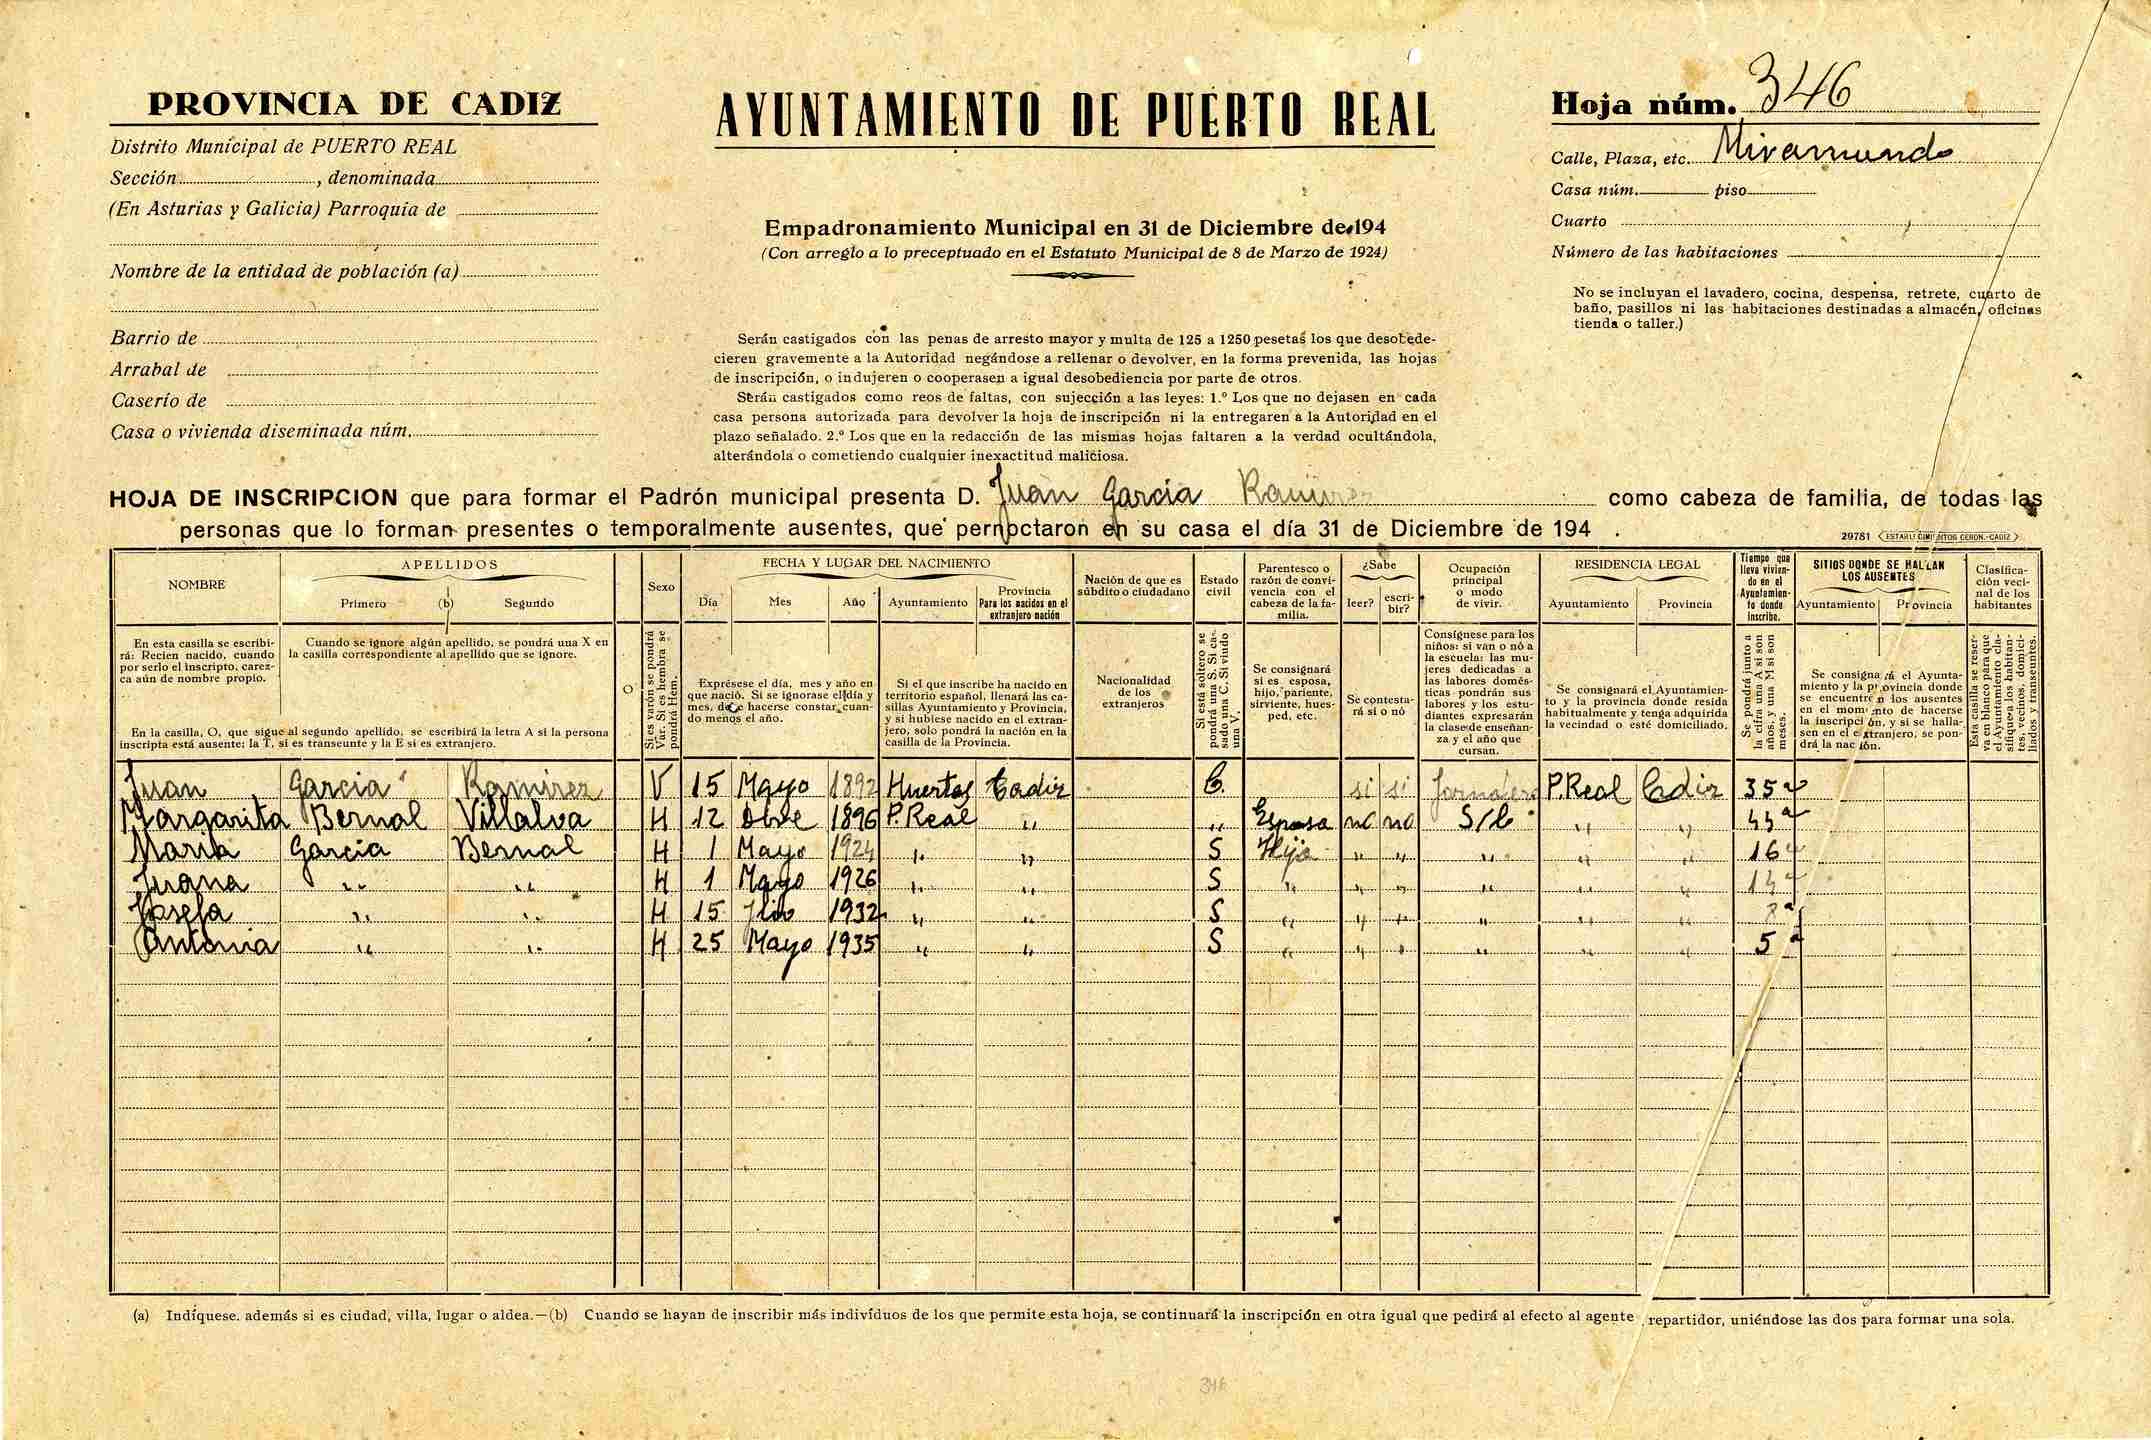 PROVINCIA DE CADIZ
Distrito Municipal de PUERTO REAL
Sección, denominada
(En Asturias y Galicia) Parroquia de
Nombre de la entidad de población (a)
Barrio de
Arrabal de
Caserío de
Casa o vivienda diseminada núm.
AYUNTAMIENTO DE PUERTO REAL
Empadronamiento Municipal en 31 de Diciembre de 194
(Con arreglo a lo preceptuado en el Estatuto Municipal de 8 de Marzo de 1924)
Serán castigados con las penas de arresto mayor y multa de 125 a 1250 pesetas los que desobede-
cieren gravemente a la Autoridad negándose a rellenar o devolver, en la forma prevenida, las hojas
de inscripción, o indujeren o cooperasen a igual desobediencia por parte de otros.
Serán castigados como reos de faltas, con sujección a las leyes: 1.º Los que no dejasen en cada
casa persona autorizada para devolver la hoja de inscripción ni la entregaren a la Autoridad en el
plazo señalado. 2.º Los que en la redacción de las mismas hojas faltaren a la verdad ocultándola,
alterándola o cometiendo cualquier inexactitud maliciosa.
Hoja núm. 346
Calle, Plaza, etc. Miramundo
Casa núm. piso
Cuarto
Número de las habitaciones
No se incluyan el lavadero, cocina, despensa, retrete, cuarto de
baño, pasillos ni las habitaciones destinadas a almacén, oficinas
tienda o taller.)
HOJA DE INSCRIPCION que para formar el Padrón municipal presenta D. Juan Garcia Ramirez como cabeza de familia, de todas las
personas que lo forman presentes o temporalmente ausentes, que pernoctaron en su casa el día 31 de Diciembre de 194 .
29781 ESTABLECIMIENTOS CERON.-CADIZ
NOMBRE
APELLIDOS
Primero (b) Segundo
Sexo
FECHA Y LUGAR DEL NACIMIENTO
Día Mes Año Ayuntamiento
Provincia
Para los nacidos en el
extranjero nación
Nación de que es
súbdito o ciudadano
Estado
civil
Parentesco o
razón de convi-
vencia con el
cabeza de la fa-
milia.
¿Sabe
leer? escri-
bir?
Ocupación
principal
o modo
de vivir.
RESIDENCIA LEGAL
Ayuntamiento Provincia
Tiempo que
lleva vivien-
do en el
Ayuntamien-
to donde
inscribe.
SITIOS DONDE SE HALLAN
LOS AUSENTES
Ayuntamiento Provincia
Clasifica-
ción veci-
nal de los
habitantes
En esta casilla se escribi-
rá: Recien nacido, cuando
por serlo el inscripto, carez-
ca aún de nombre propio.
Cuando se ignore algún apellido, se pondrá una X en
la casilla correspondiente al apellido que se ignore.
En la casilla, O, que sigue al segundo apellido, se escribirá la letra A si la persona
inscripta está ausente; la T, si es transeunte y la E si es extranjero.
O
Si es varón se pondrá
Var. Si es hembra se
pondrá Hem.
Exprésese el día, mes y año en
que nació. Si se ignorase el día y
mes, debe hacerse constar cuan-
do menos el año.
Si el que inscribe ha nacido en
territorio español, llenará las ca-
sillas Ayuntamiento y Provincia,
y si hubiese nacido en el extran-
jero, solo pondrá la nación en la
casilla de la Provincia.
Nacionalidad
de los
extranjeros
Si está soltero se
pondrá una S. Si ca-
sado una C. Si viudo
una V.
Se consignará
si es esposa,
hijo, pariente,
sirviente, hues-
ped, etc.
Se contesta-
rá si o nó
Consígnese para los
niños: si van o nó a
la escuela: las mu-
jeres dedicadas a
las labores domés-
ticas pondrán sus
labores y los estu-
diantes expresarán
la clase de enseñan-
za y el año que
cursan.
Se consignará el Ayuntamien-
to y la provincia donde resida
habitualmente y tenga adquirida
la vecindad o esté domiciliado.
Se pondrá junto a
la cifra una A si son
años, y una M si son
meses.
Se consignará el Ayunta-
miento y la provincia donde
se encuentren los ausentes
en el momento de hacerse
la inscripción, y si se halla-
sen en el extranjero, se pon-
drá la nación.
Esta casilla se reser-
va en blanco para que
el Ayuntamiento cla-
sifique a los habitan-
tes, vecinos, domici-
liados y transeuntes.
Juan Garcia Ramirez V 15 Mayo 1892 Huertas Cadiz C. si si Jornalero P. Real Cadiz 35 a
Margarita Bernal Villalva H 12 Obre 1896 P. Real " " Esposa no no S/l " " 44 a
Maria Garcia Bernal H 1 Mayo 1924 " " S Hija " " " " " 16 a
Juana " " H 1 Mayo 1926 " " S " " " " " " 14 a
Josefa " " H 15 Jlio 1932 " " S " " " " " " 8 a
Antonia " " H 25 Mayo 1935 " " S " " " " " " 5 a
(a) Indíquese. además si es ciudad, villa, lugar o aldea.—(b) Cuando se hayan de inscribir más individuos de los que permite esta hoja, se continuará la inscripción en otra igual que pedirá al efecto al agente repartidor, uniéndose las dos para formar una sola.
346